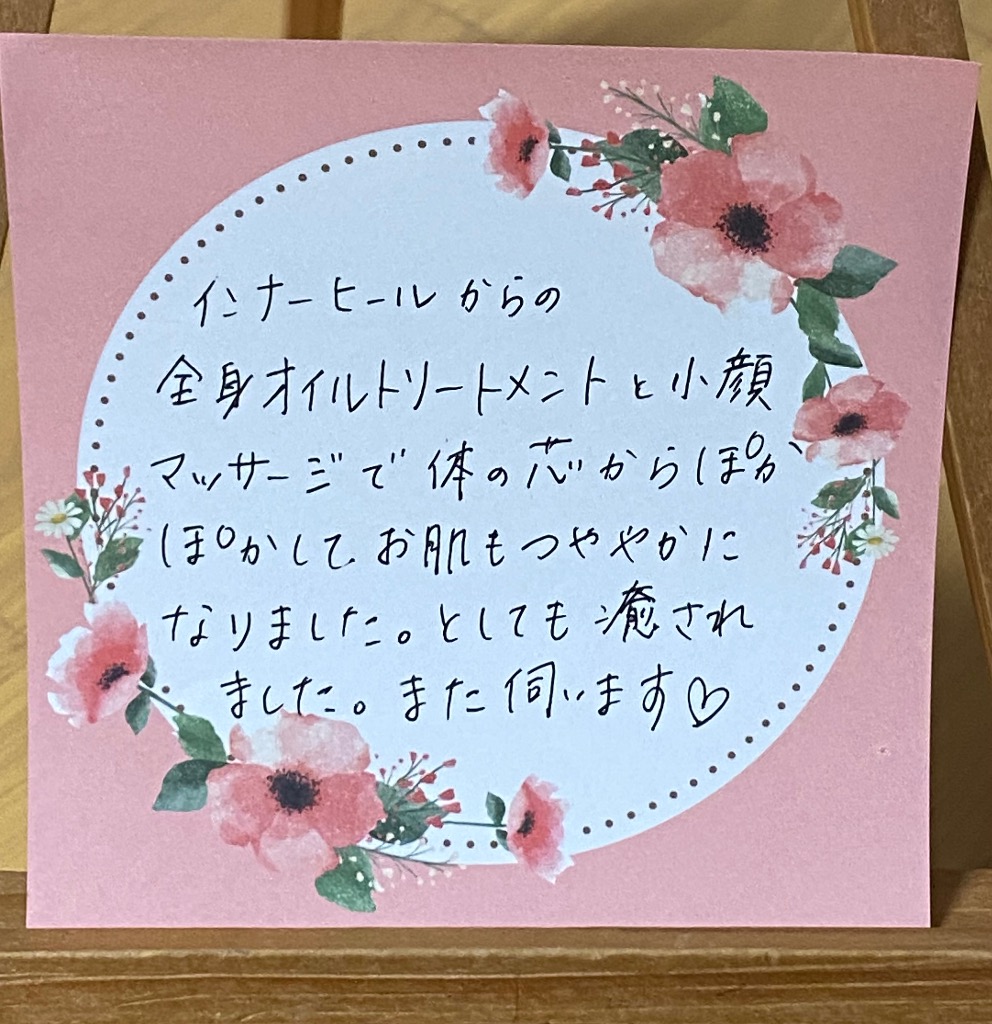 インナーヒールからの
全身オイルトリートメントと小顔
マッサージで体の芯からぽか
ぽかして、お肌もつややかに
なりました。としても癒され
ました。また伺います♡